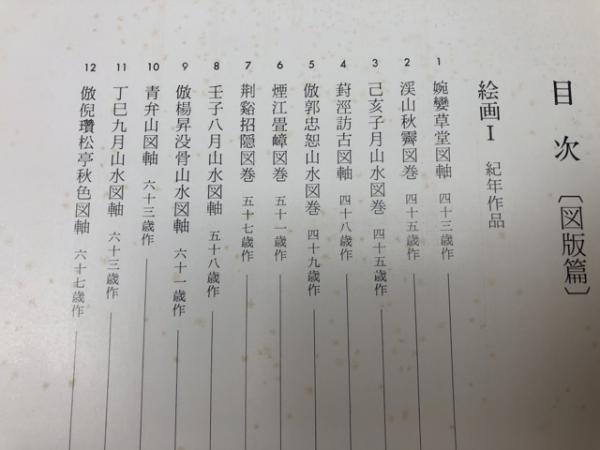 目次〔図版篇〕
絵画Ⅰ 紀年作品
1 婉孌草堂図軸 四十三歳作
2 渓山秋霽図巻 四十五歳作
3 己亥子月山水図巻 四十五歳作
4 葑涇訪古図軸 四十八歳作
5 倣郭忠恕山水図巻 四十九歳作
6 煙江畳嶂図巻 五十一歳作
7 荆谿招隠図巻 五十七歳作
8 壬子八月山水図軸 五十八歳作
9 倣楊昇没骨山水図軸 六十一歳作
10 青弁山図軸 六十三歳作
11 丁巳九月山水図軸 六十三歳作
12 倣倪瓚松亭秋色図軸 六十七歳作